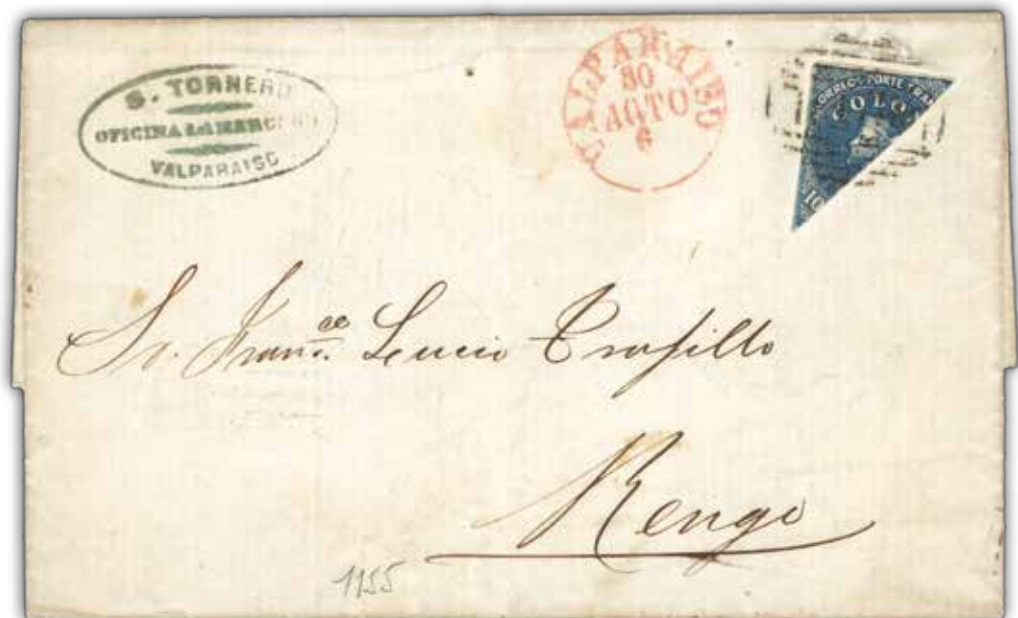 S. TORNERO
OFICINA
VALPARAISO
VALPARAISO
30
AGTO
6
CORREOS PORTE FRAN
COLO
10
Sr. Franco. Lucio Trujillo
Rengo
1155